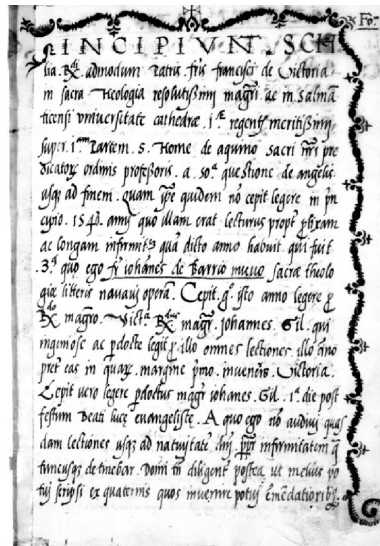 Fo.
INCIPIVNT. SCH
lia. R.di admodum Patris fris francisci de Victoria.
in sacra Theologia resolutissimi magri. ac in Salma
ticensi vniversitate cathedrae .1.ae regentis meritissimi
super .1.am Partem. S. Thome de aquino Sacri nris pre
dicatorz ordinis professoris. a .50.a questione de angelis
usqz ad finem. quam ipse quidem no cepit legere in prin
cipio. 1540. anni quo illam erat lecturus propter
ac longam infirmitatem qua dicto anno habuit qui fuit
.3.us quo ego fr iohanes de Barrio nuevo sacrae theolo
giae litteris navavi opera. Cepit. g.o isto anno legere p
R.do magro. Vict.a R.dus magr. iohannes. Gil. qui
ingeniose ac perdocte legit p illo omnes lectiones. illo
preter eas in quarz. margine pono. inveneris. Victoria.
Cepit vero legere pdoctus magr iohanes. Gil. 1.a die post
festum Beati luce evangeliste. A quo ego no audivi quas
dam lectiones usqz ad nativitate dni. propter infirmitatem q
tuncusqz detinebar. Domi tn diligenter postea ut melius po
tui scripsi ex quaternis quos invenire potui emendatioribz.